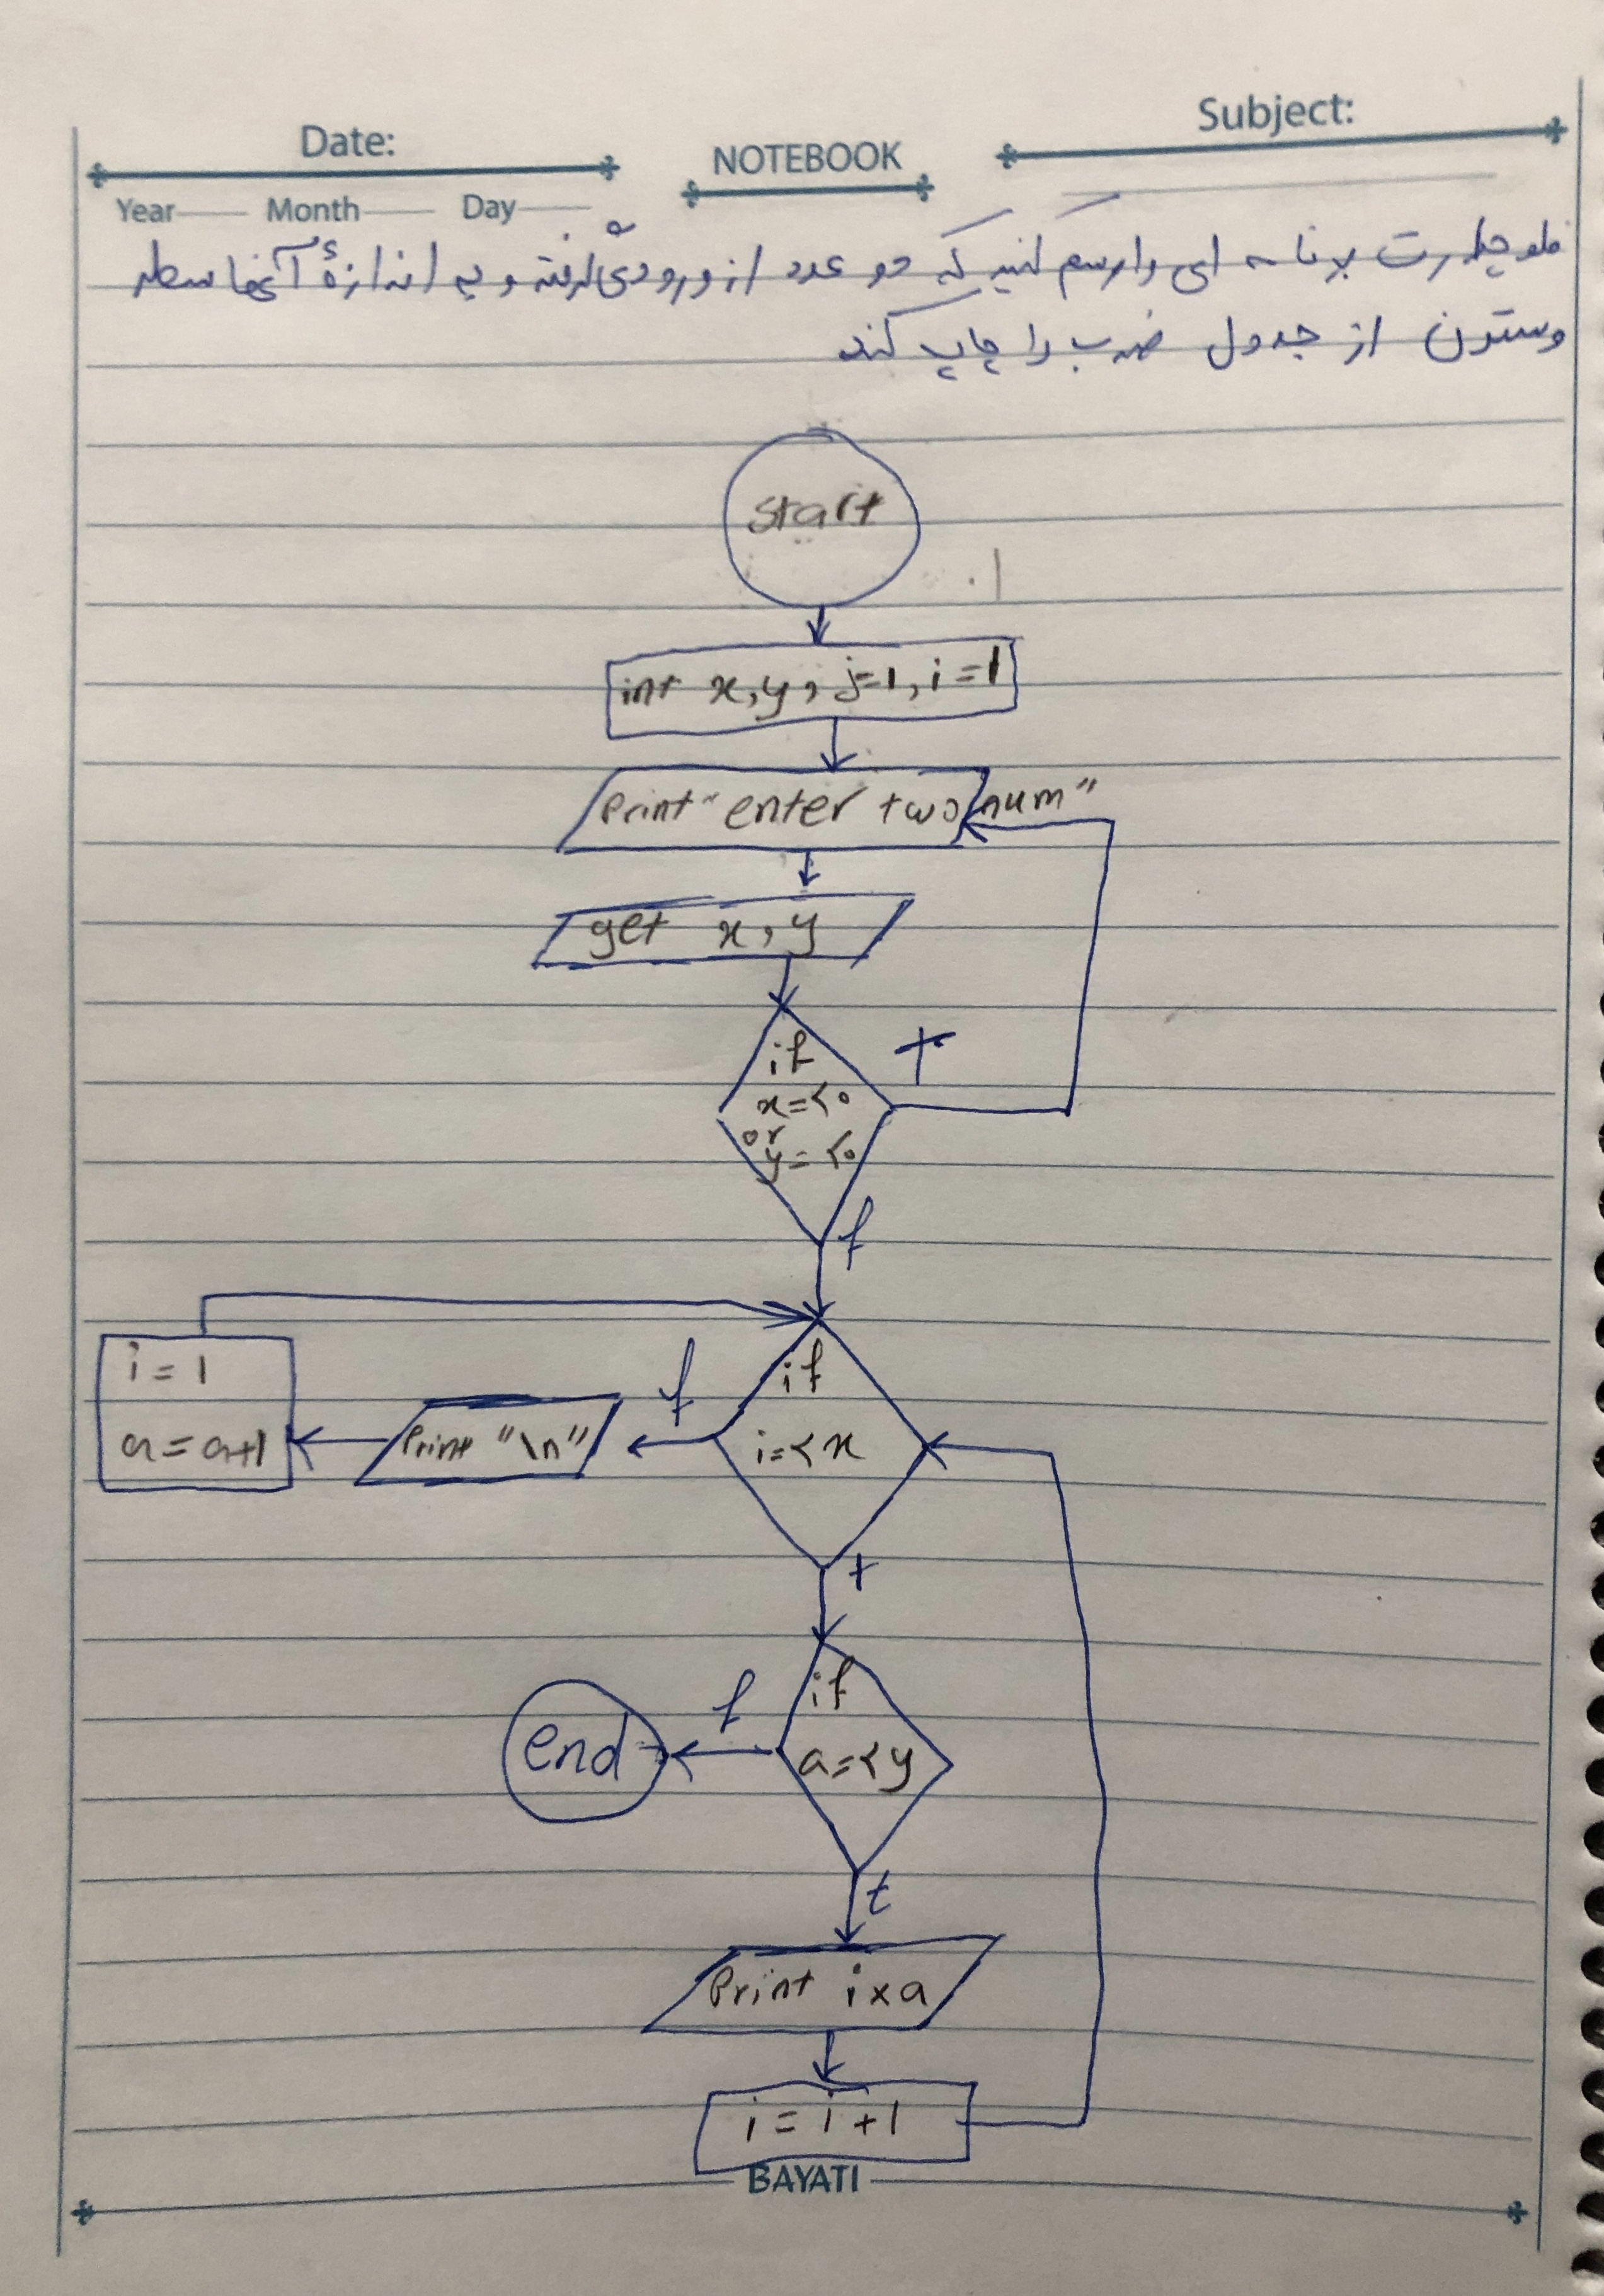 Date:
NOTEBOOK
Subject:
Year Month Day
فلوچارت برنامه ای را رسم کنید که دو عدد از ورودی گرفته و به اندازهٔ آنها سطر
وستون از جدول ضرب را چاپ کند
start
int x,y, j=1, i=1
Print "enter two num"
get x,y
if
x=<0
or
y=<0
T
f
if
i=<x
f
Print "\n"
i = 1
a = a+1
t
if
a=<y
f
end
t
Print i×a
i = i+1
BAYATI